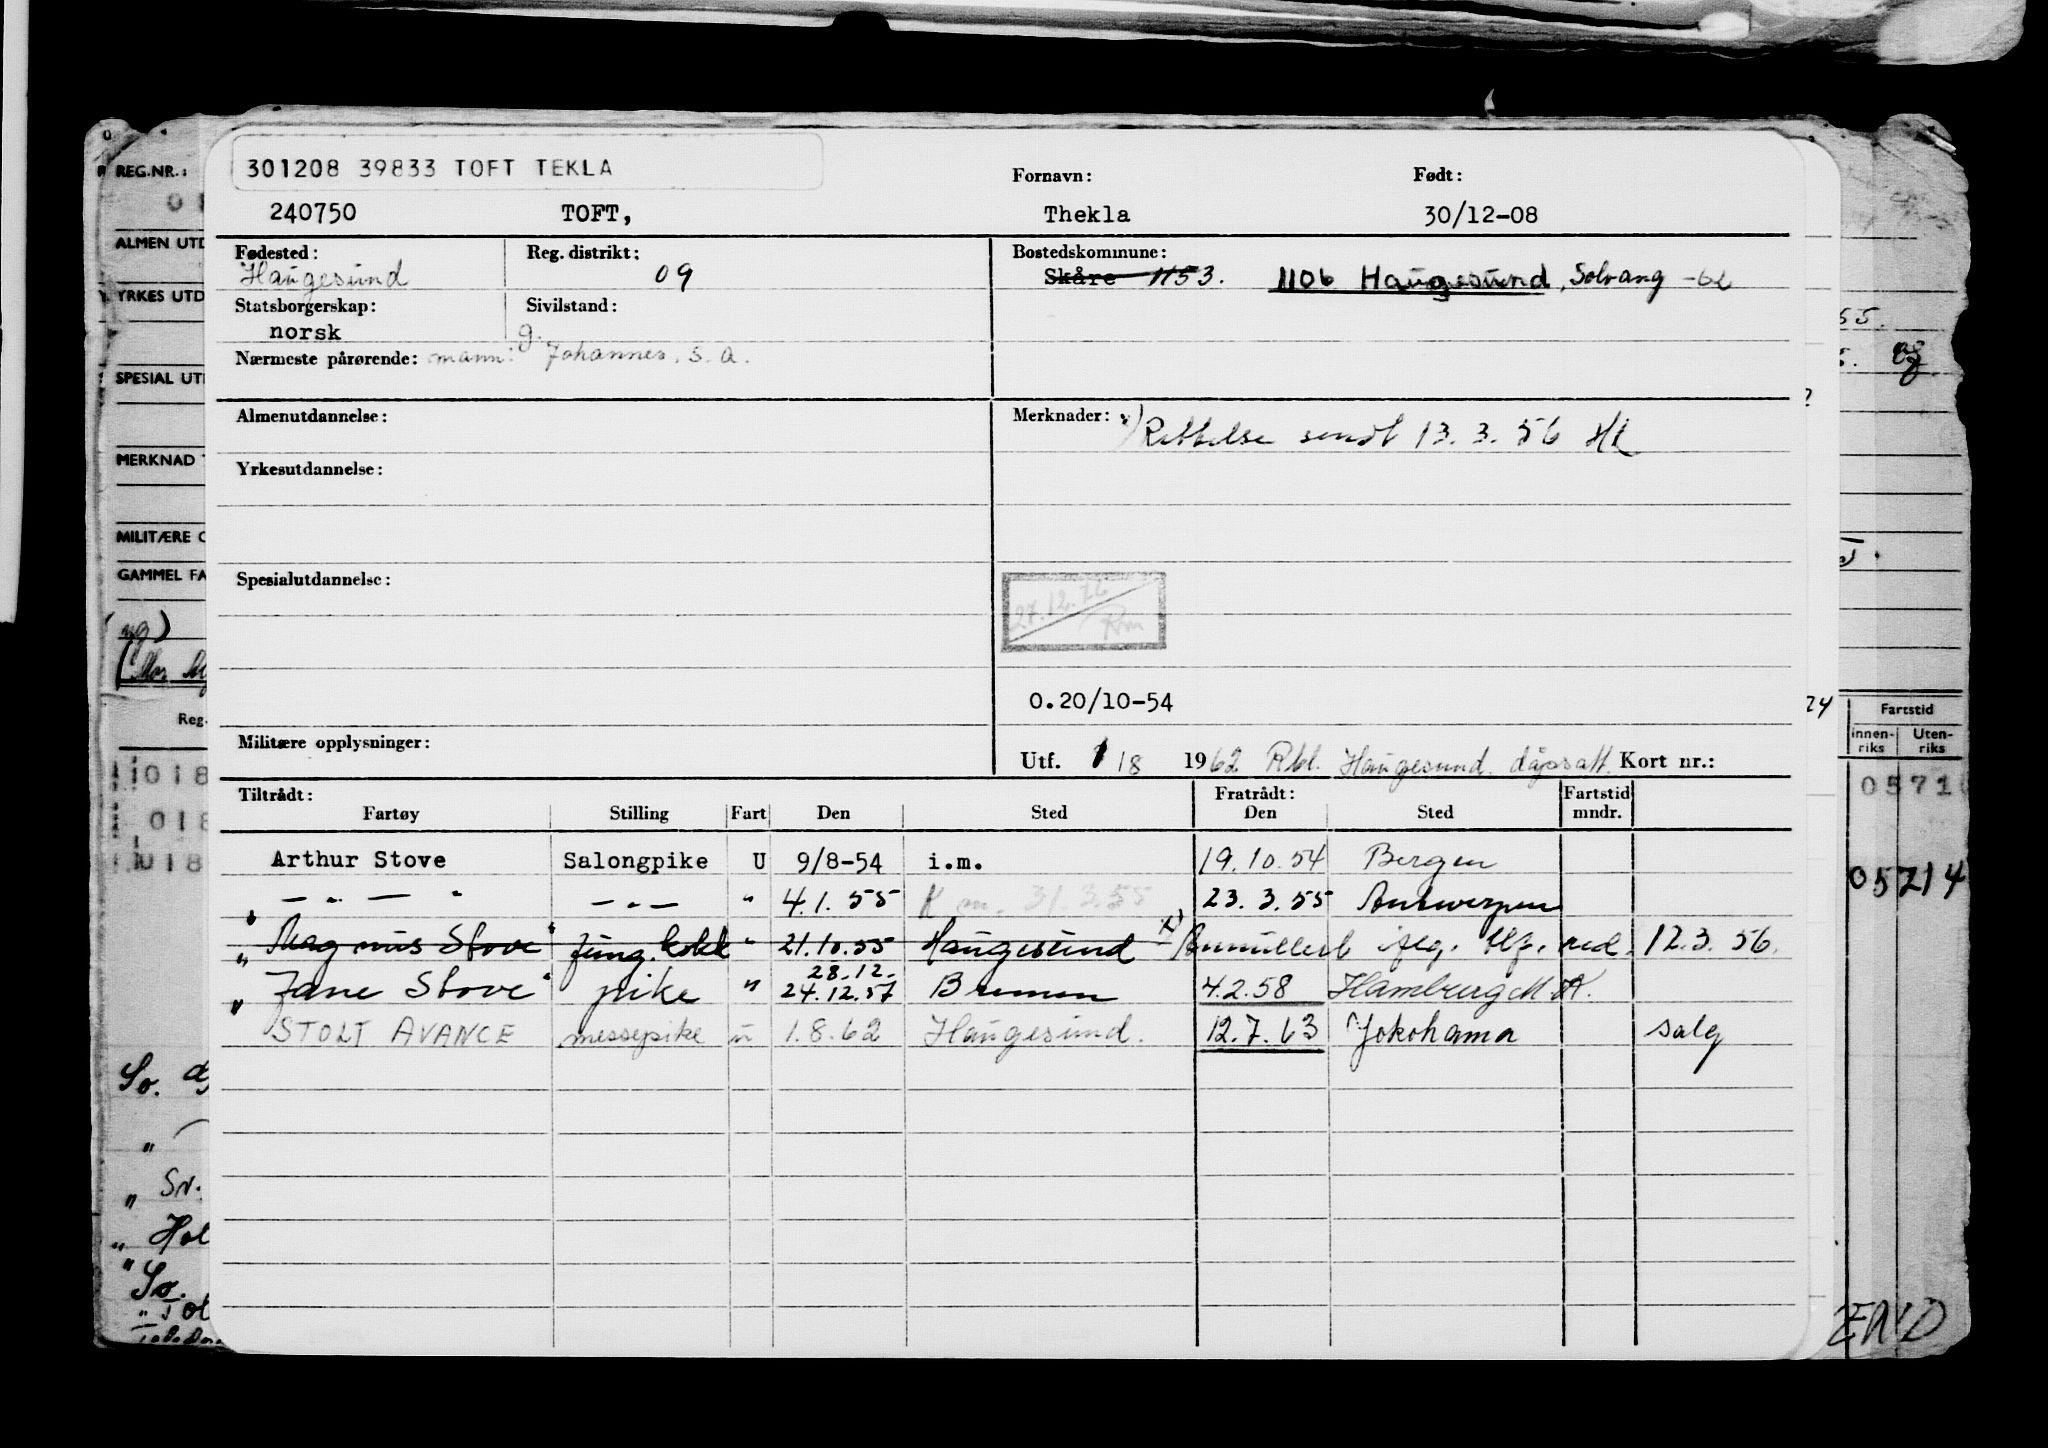 301208 39833 TOFT TEKLA
Fornavn: Født:
240750 TOFT, Thekla 30/12-08
Fødested: Reg. distrikt: Bostedskommune:
Haugesund 09 Skåre 1153. 1106 Haugesund, Solvang -62
Statsborgerskap: Sivilstand:
norsk g.
Nærmeste pårørende: mann: Johannes. s. a.
Almenutdannelse: Merknader: x) Rettelse sendt 13. 3. 56 HL
Yrkesutdannelse:
Spesialutdannelse:
27.12.76
0.20/10-54
Militære opplysninger: Utf. 1/8 1962 Rbl. Haugesund. Kort nr.:
Tiltrådt: Fratrådt: Fartstid
Fartøy Stilling Fart Den Sted Den Sted mndr.
Arthur Stove Salongpike U 9/8-54 i.m. 19.10.54 Bergen
— " — " — " — " 4.1.55 K m. 31.3.55 23.3.55 Antwerpen
" Magnus Stove " fung. kokk " 21.10.55 Haugesund x) Annullert iflg. 12.3.56.
28.12.
" Jane Stove " pike " 24.12.57 Bremen 4.2.58 Hamburg
STOLT AVANCE messepike u 1.8.62 Haugesund. 12.7.63 Yokohama salg
REG.NR.:
ALMEN UTD
YRKES UTD
SPESIAL UT
MERKNAD
MILITÆRE O
GAMMEL FA
Reg.
018
018
018
So.
Sv.
Hol
So.
55.
24
Fartstid
innen-riks Uten-riks
0571
05714